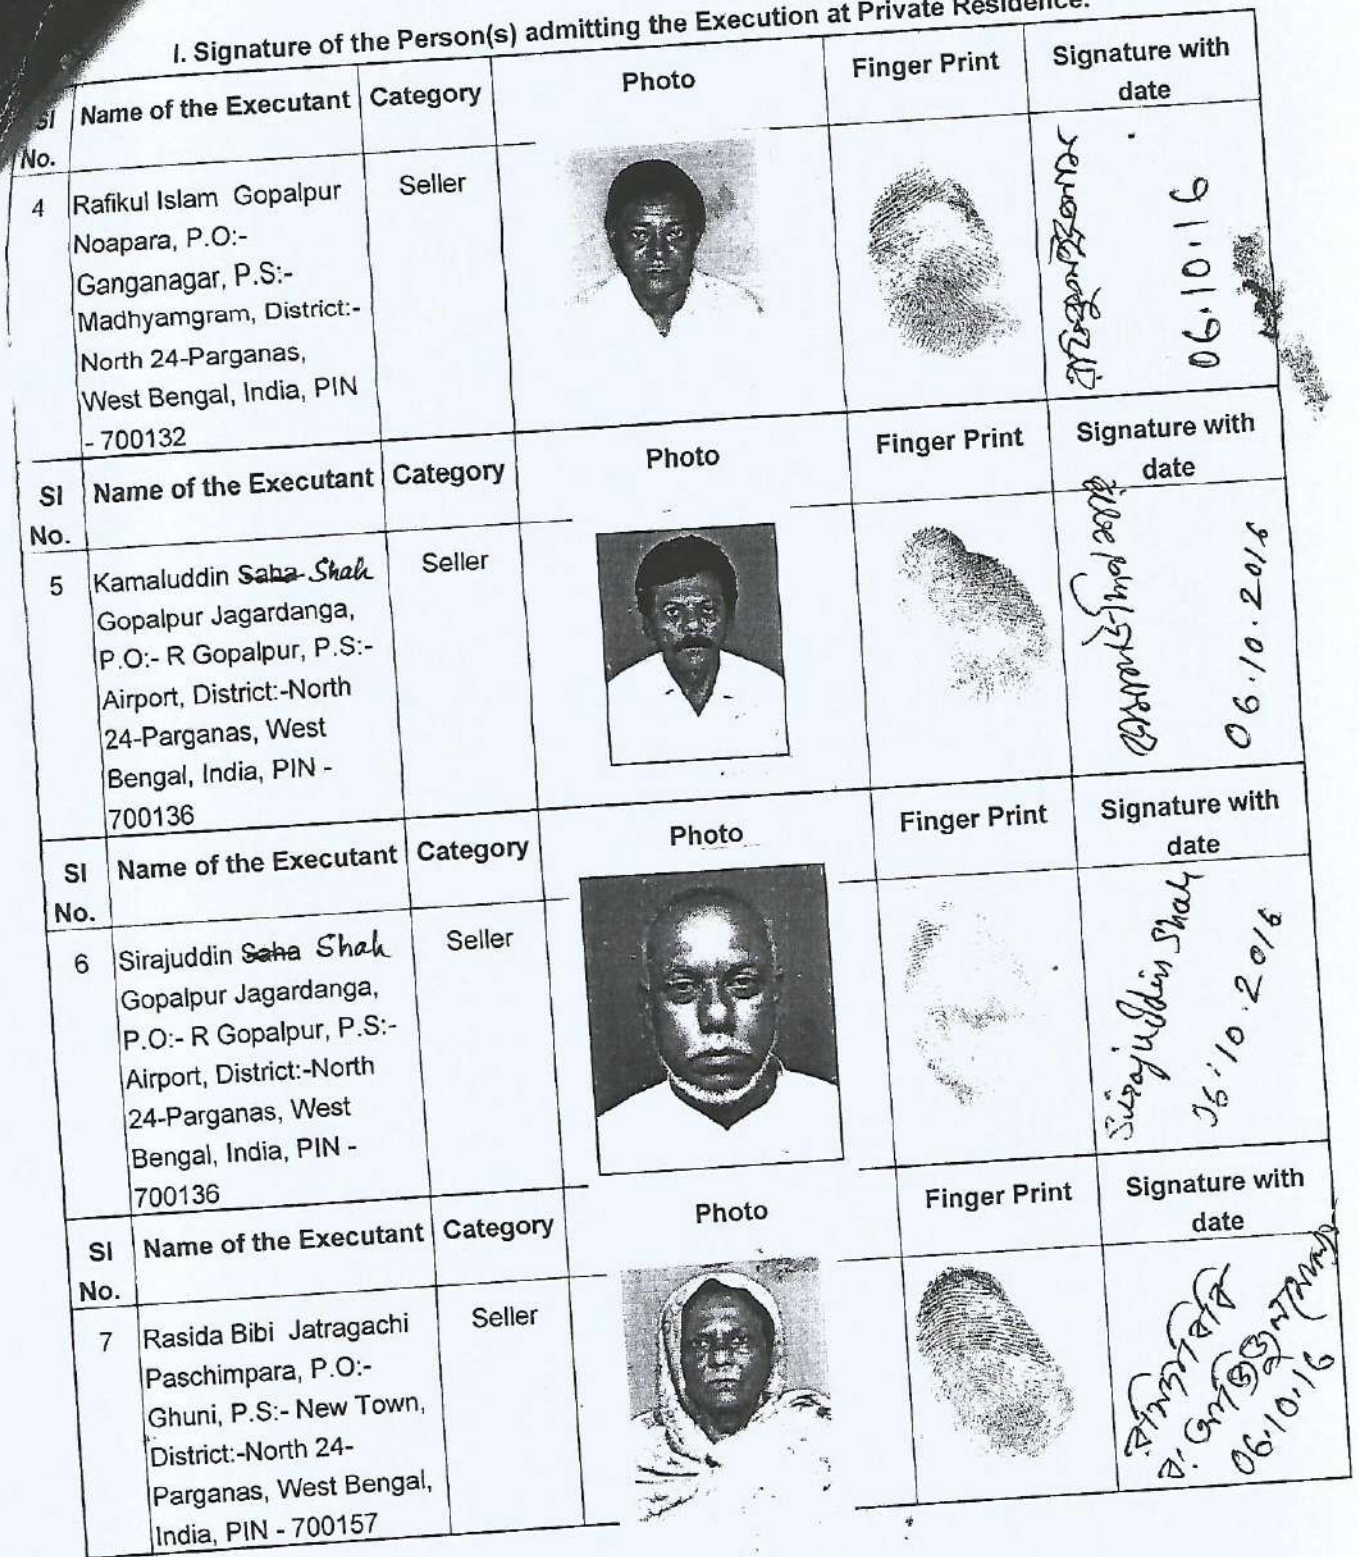 I. Signature of the Person(s) admitting the Execution at Private Residence.
Sl No. Name of the Executant Category Photo Finger Print Signature with date
4 Rafikul Islam Gopalpur Seller
Noapara, P.O:-
Ganganagar, P.S:-
Madhyamgram, District:-
North 24-Parganas,
West Bengal, India, PIN
- 700132
রফিকুল ইসলাম
06.10.16
Sl No. Name of the Executant Category Photo Finger Print Signature with date
5 Kamaluddin Saha Shah Seller
Gopalpur Jagardanga,
P.O:- R Gopalpur, P.S:-
Airport, District:-North
24-Parganas, West
Bengal, India, PIN -
700136
06.10.2016
Sl No. Name of the Executant Category Photo Finger Print Signature with date
6 Sirajuddin Saha Shah Seller
Gopalpur Jagardanga,
P.O:- R Gopalpur, P.S:-
Airport, District:-North
24-Parganas, West
Bengal, India, PIN -
700136
Sirajuddin Shah
06.10.2016
Sl No. Name of the Executant Category Photo Finger Print Signature with date
7 Rasida Bibi Jatragachi Seller
Paschimpara, P.O:-
Ghuni, P.S:- New Town,
District:-North 24-
Parganas, West Bengal,
India, PIN - 700157
রসিদা বিবি
06.10.16